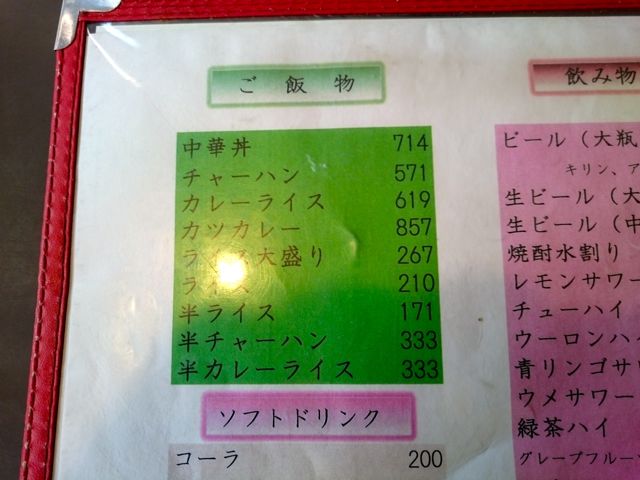 ご飯物
中華丼 714
チャーハン 571
カレーライス 619
カツカレー 857
ライス大盛り 267
ライス 210
半ライス 171
半チャーハン 333
半カレーライス 333
ソフトドリンク
コーラ 200
飲み物
ビール（大瓶
キリン、ア
生ビール（大
生ビール（中
焼酎水割り
レモンサワー
チューハイ
ウーロンハイ
青リンゴサワ
ウメサワー
緑茶ハイ
グレープフルー